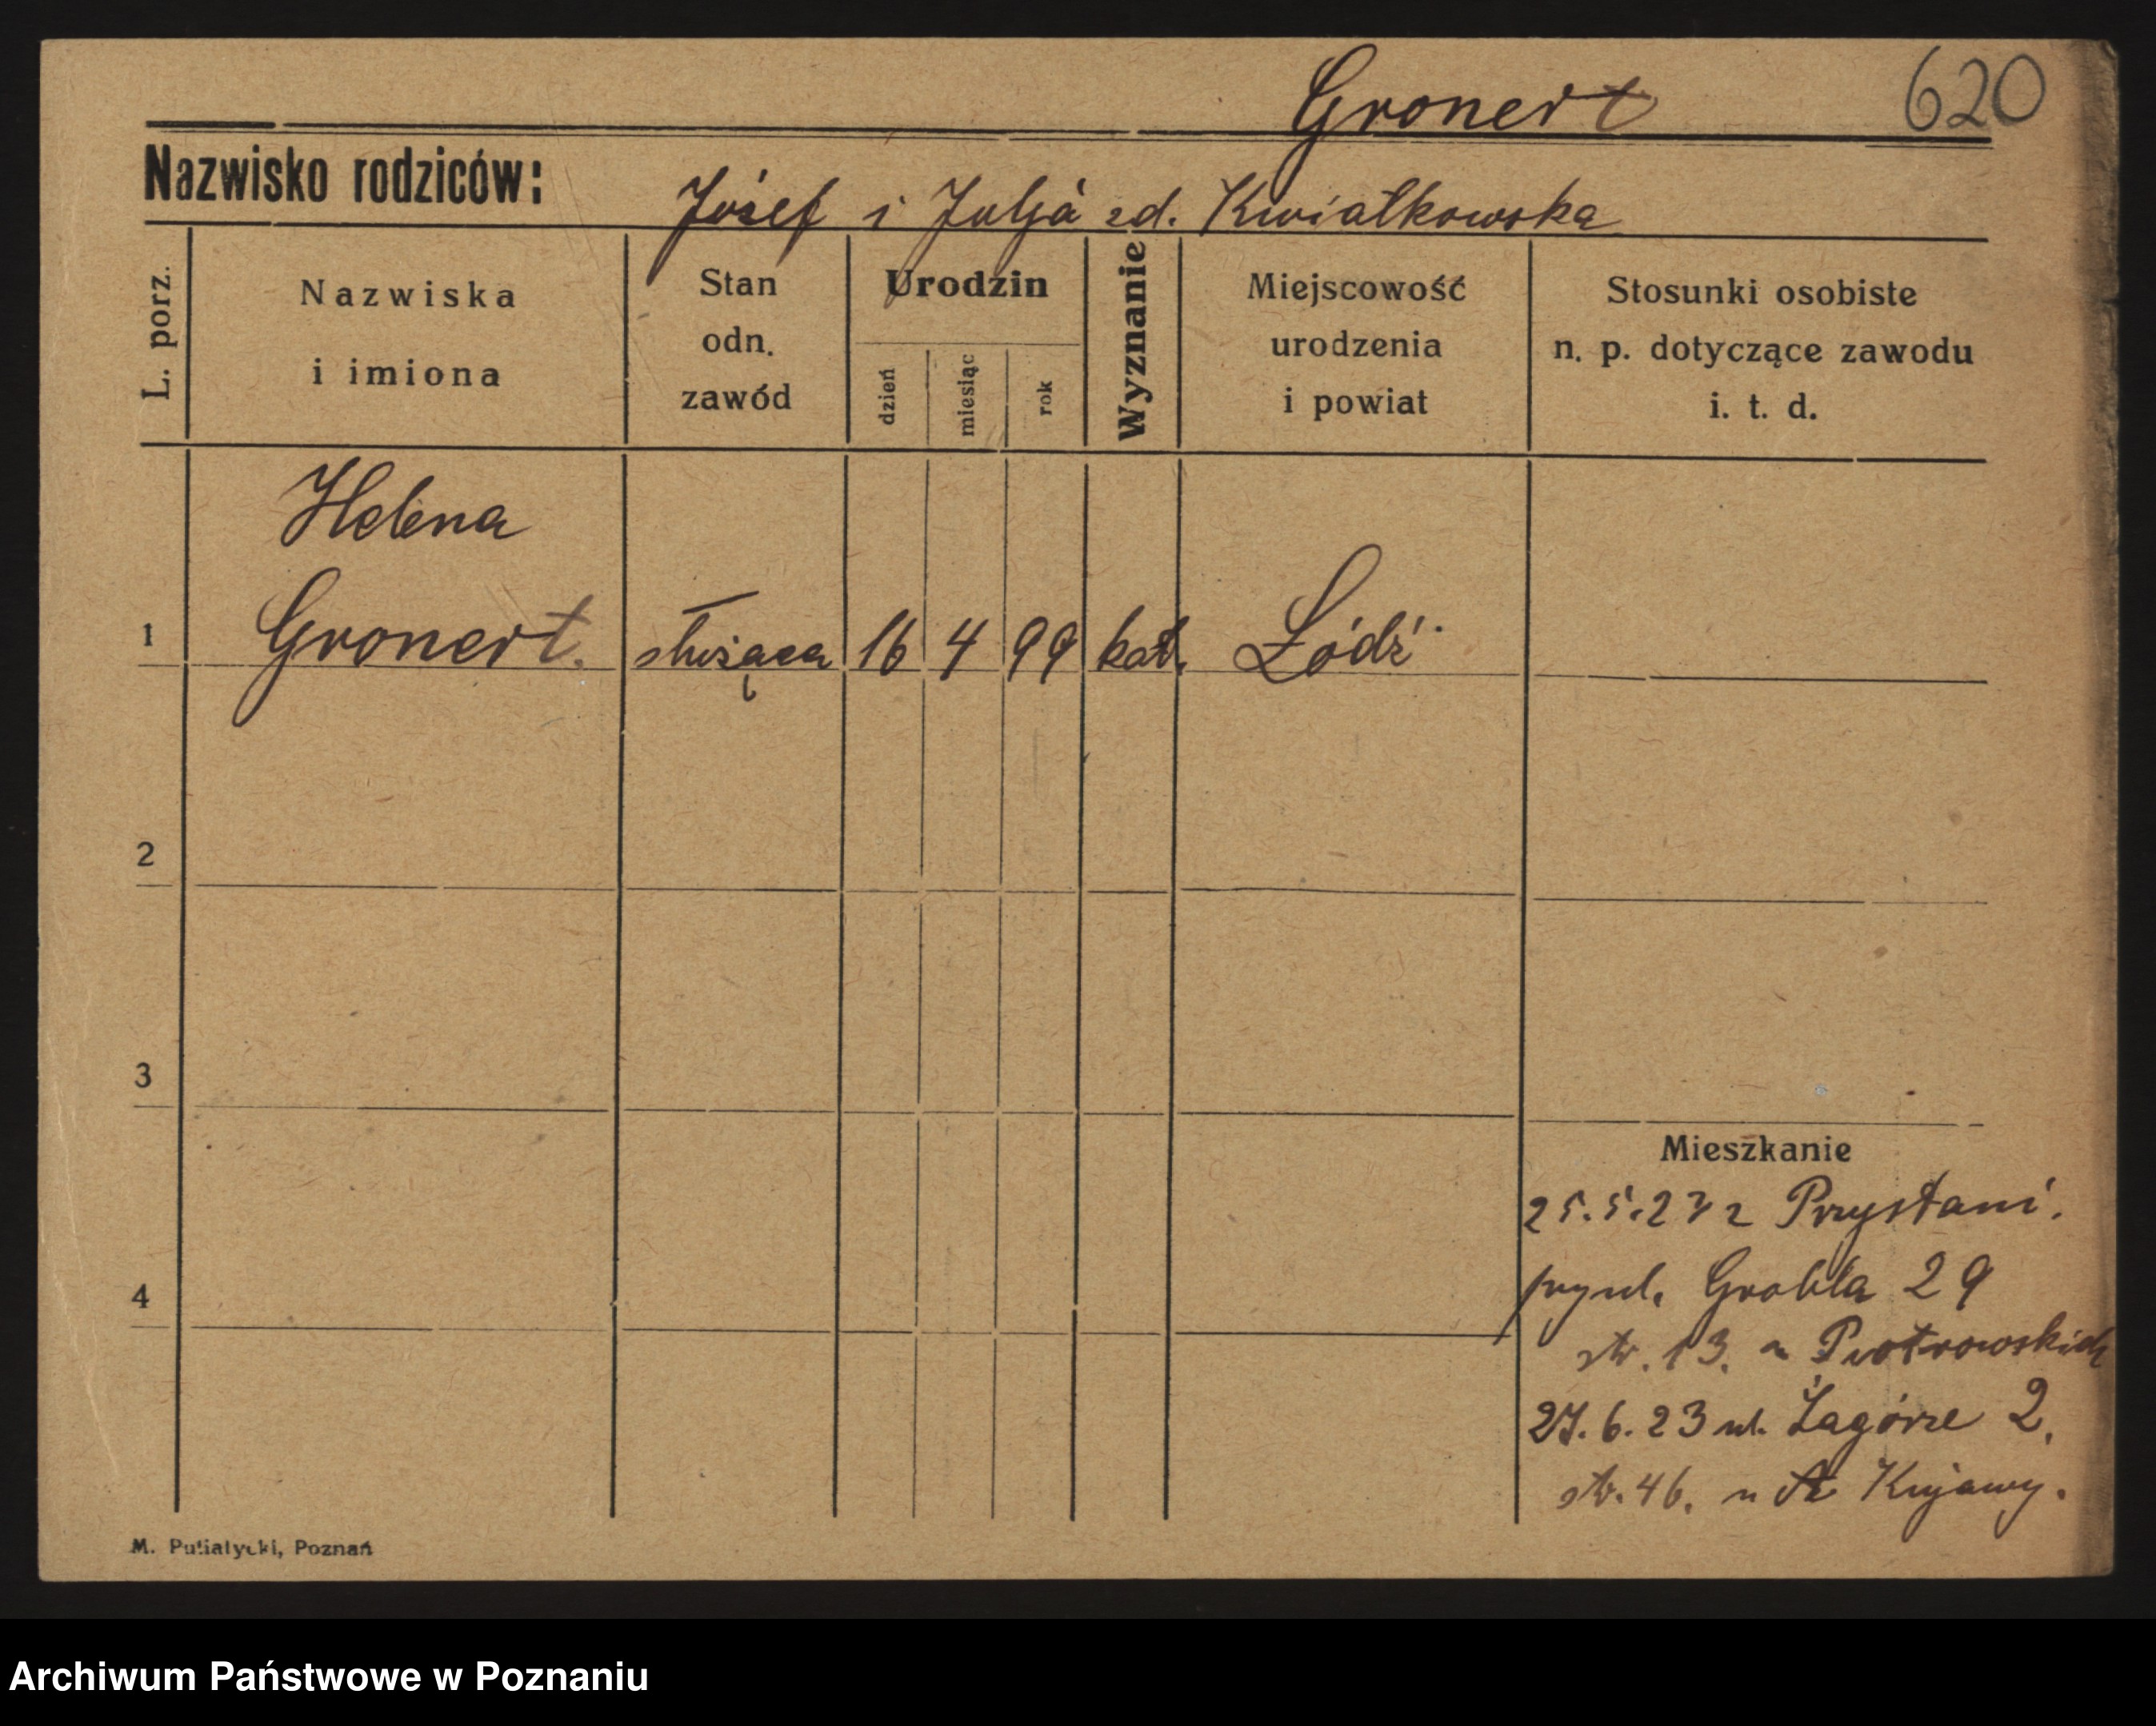 Gronert 620
Nazwisko rodziców:
Józef i Julja zd. Kwiatkowska
L. porz.
Nazwiska
i imiona
Stan
odn.
zawód
Urodzin
dzień
miesiąc
rok
Wyznanie
Miejscowość
urodzenia
i powiat
Stosunki osobiste
n. p. dotyczące zawodu
i. t. d.
Helena
1 Gronert. służąca 16 4 99 kat. Łódź
2
3
4
Mieszkanie
25.5.23 z Przystani.
Grobla 29
str. 13. u Piotrowskich
27.6.23 ul. Zagórze 2.
str. 46. u Kujawy.
M. Putiatycki, Poznań
Archiwum Państwowe w Poznaniu